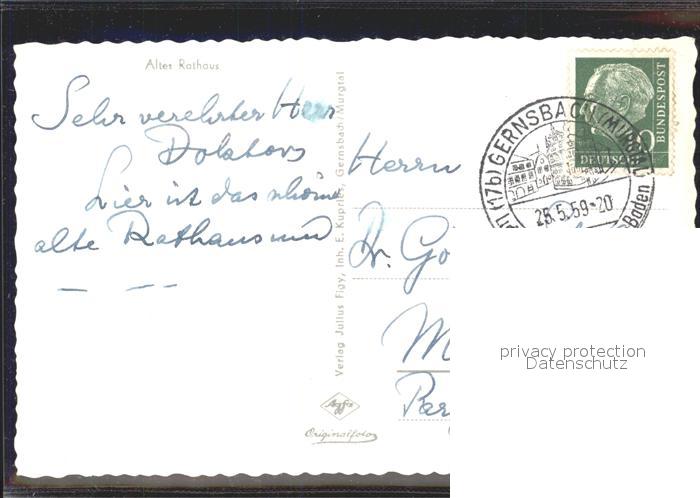 Altes Rathaus
Sehr verehrter Herr
Doktor
hier ist das schöne
alte Rathaus und
— — —
Verlag Julius Figy, Inh. E. Kupries, Gernsbach/Murgtal
Agfa
Originalfoto
Herrn
Dr. Gö
M
DEUTSCHE
BUNDESPOST
(17b) GERNSBACH (MURGTAL)
28.5.59-20
Baden
privacy protection
Datenschutz